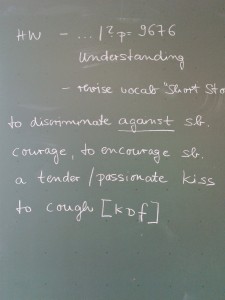 HW - ... /?p=9676
Understanding
- revise vocab "Short Sto
to discriminate against sb.
courage, to encourage sb.
a tender / passionate kiss
to cough [kɒf]